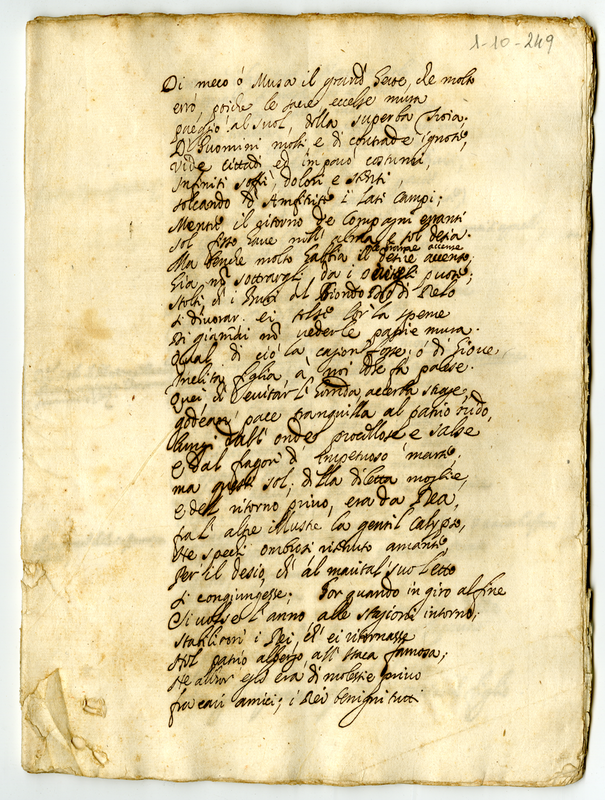 1-10-249
Di meco ò Musa il grand' Eroe, che molto
errò, poiche le sacre eccelse mura
al suol, della superba Troia.
D'huomini molti e di contrade ignote,
vide cittadi ed imparò costumi,
Infiniti soffrì, dolori e stenti,
solcando d'Amfitrite i lati campi;
Mentre il ritorno de compagni erranti
sol fisso have nell'alma e sol desia.
Ma benche molto habbia il desire acceso,
Già nõ sottrargli da i puote,
stolti, ch'i del biondo Dio di Delo
si divorar. ei tolse lor la speme
Di giam̃ai nõ veder le patrie mura.
Qual di ciò la cagion fosse, ò di Giove
Inclita figlia a noi fa palese.
Quei ch'evitar l'horrida, acerba strage,
godean' pace tranquilla al patrio nido,
lungi dall' onde procellose e salse
e dal fragor d' impetuoso mare,
ma questi sol, della diletta moglie,
e del ritorno privo, era da Dea,
fra l'altre illustre la gentil Calypso,
Ne spechi ombrosi ritenuto amante,
Per il desio, ch' al marital suo letto
si congiungesse. Por quando in giro al fine
si volse l'anno alle stagioni intorno;
stabiliron i Dei, ch' ei ritornasse
Nel patrio albergo, all' Itaca famosa;
Ne allhor egli era di molestie privo
fra cari amici; i Dei benigni tutti